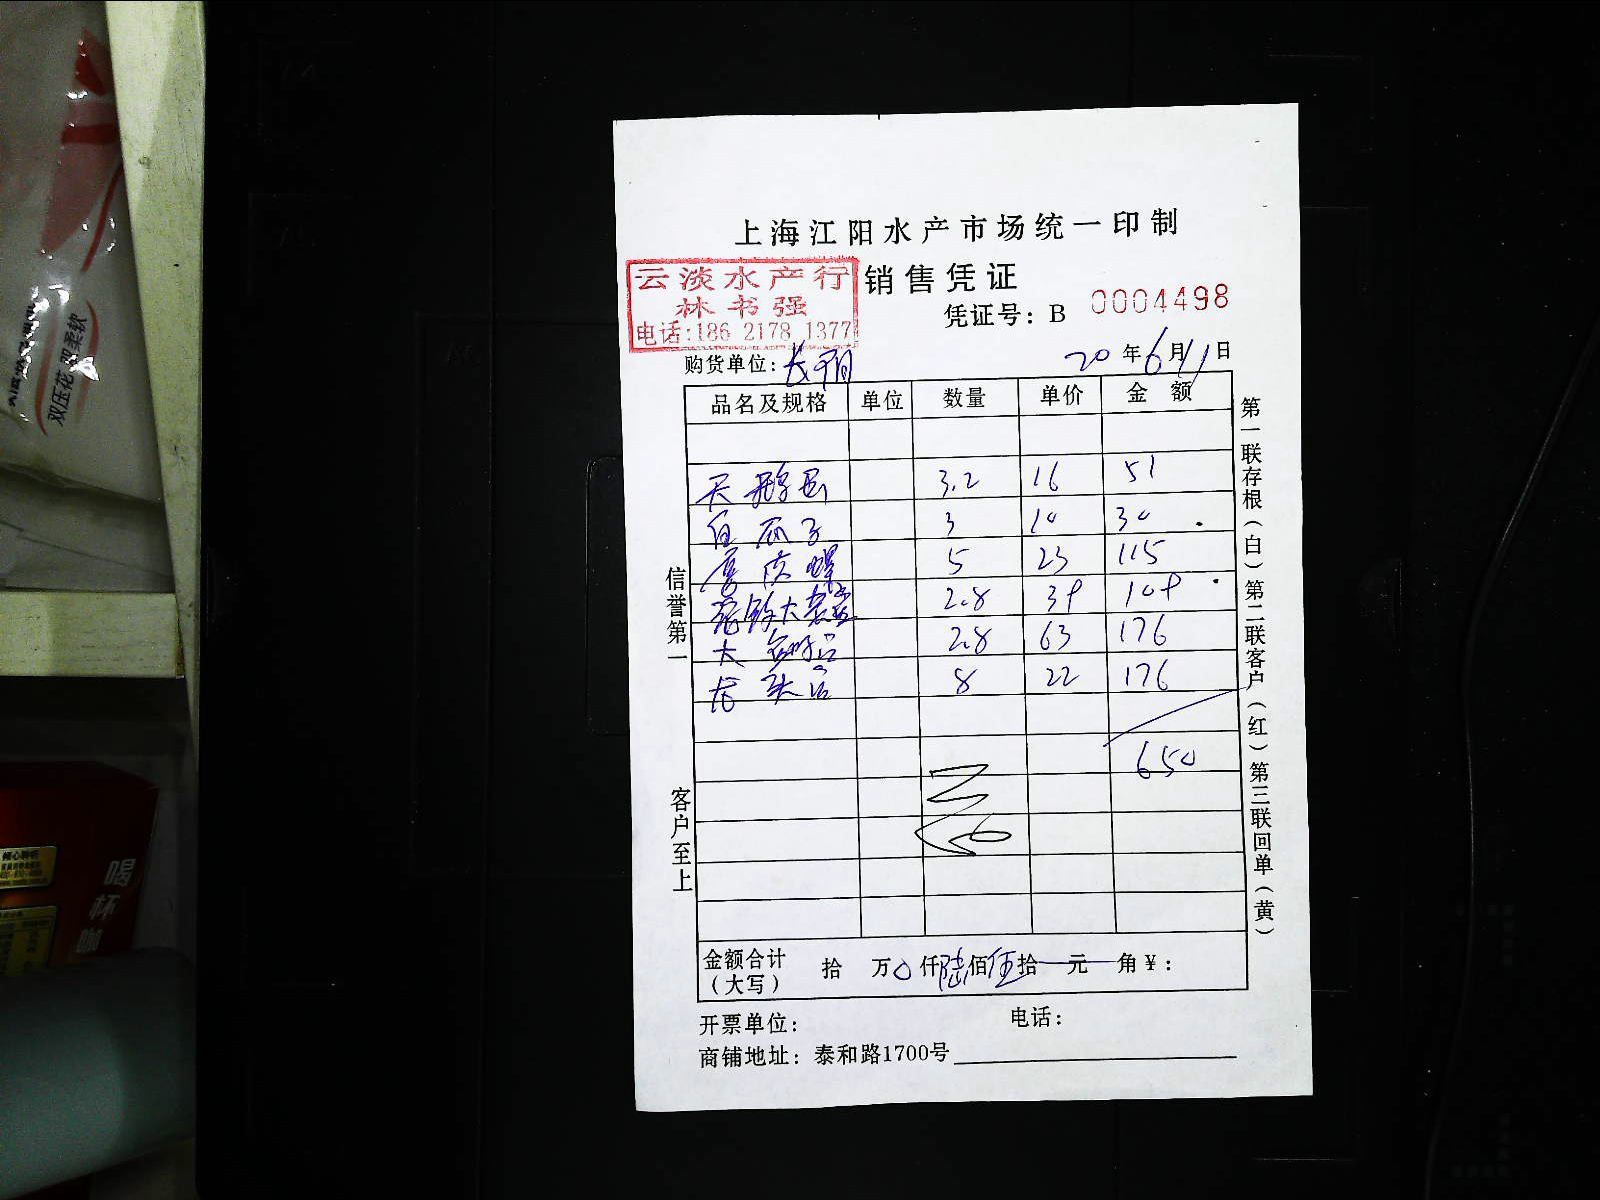 上海江阳水产市场统一印制
销售凭证
云淡水产行
林书强
电话:186 2178 1377
凭证号: B 0004498
购货单位: 20 年 6 月 11 日
品名及规格 单位 数量 单价 金额
天鹅蛋 3.2 16 51
白瓜子 3 10 30
5 23 115
2.8 39 109
2.8 63 176
8 22 176
650
金额合计(大写) 拾 万 0 仟 陆 佰 伍 拾 元 角 ¥:
开票单位: 电话:
商铺地址: 泰和路1700号
信誉第一
客户至上
第一联存根(白)第二联客户(红)第三联回单(黄)
双压花 更柔软
喝杯咖